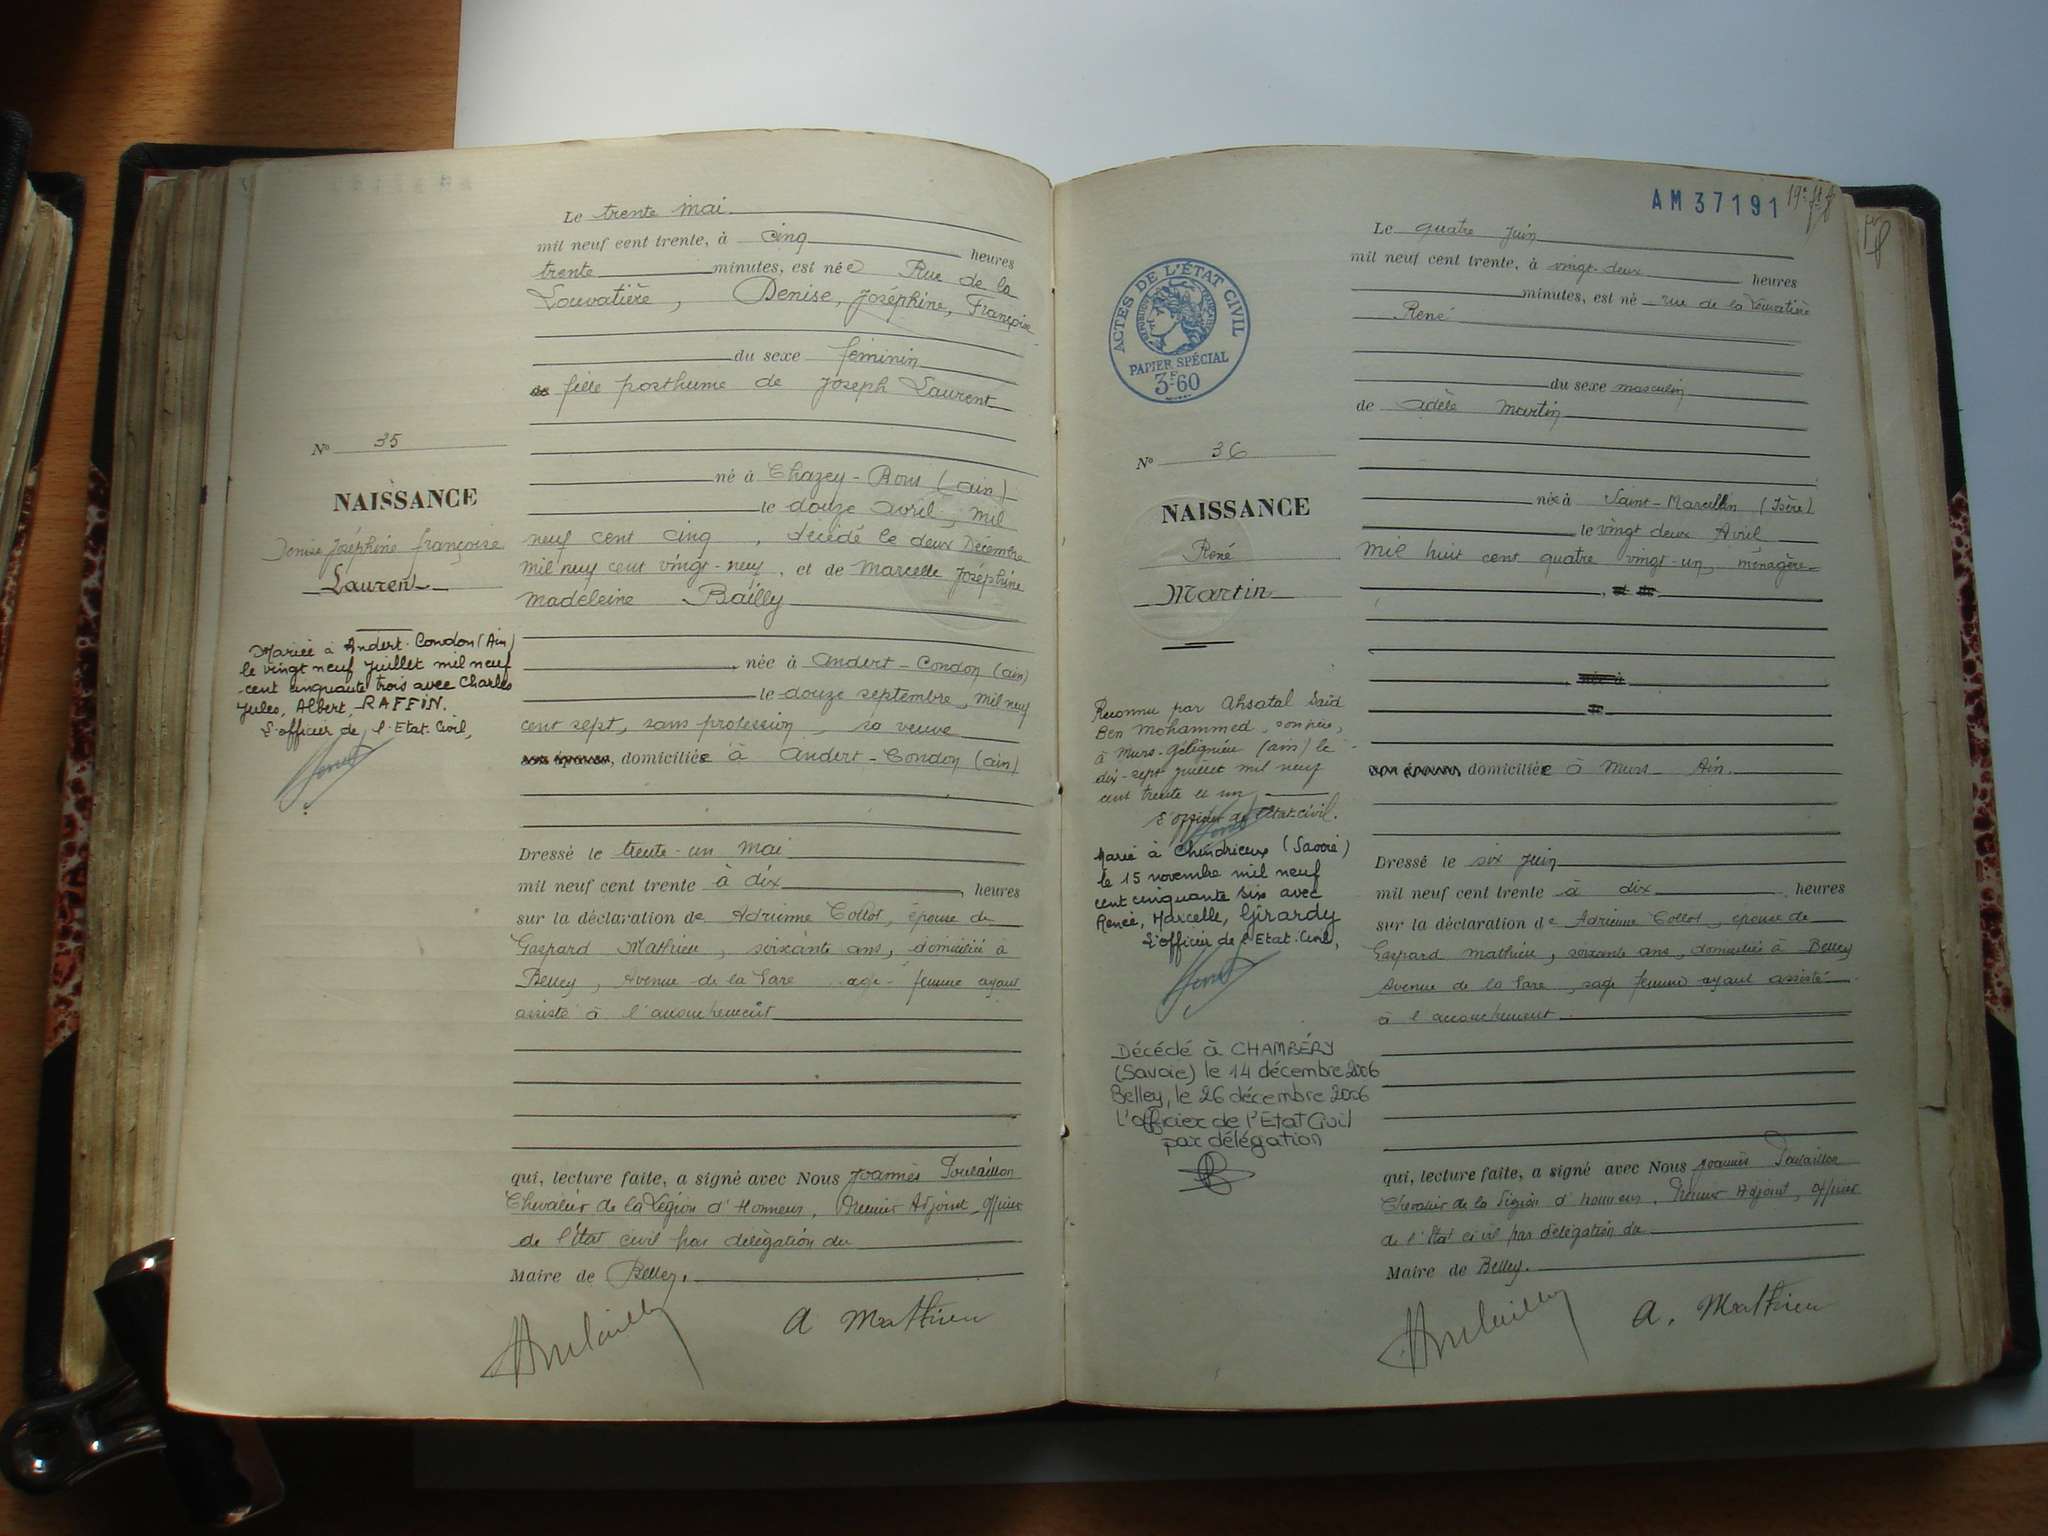 Le trente mai
mil neuf cent trente, à cinq heures
trente minutes, est née Rue de la
Louvatière, Denise, Joséphine, Françoise
du sexe féminin
fille posthume de Joseph Laurent
né à Chazey-Bons (ain)
le douze avril, mil
neuf cent cinq, décédé le deux Décembre
mil neuf cent vingt-neuf, et de Marcelle Joséphine
Madeleine Bailly
née à Andert-Condon (ain)
le douze septembre, mil neuf
cent sept, sans profession, sa veuve
domiciliée à Andert-Condon (ain)
Dressé le trente-un mai
mil neuf cent trente à dix, heures
sur la déclaration de Adrienne Collot, épouse de
Gaspard Mathieu, soixante ans, domiciliée à
Belley, Avenue de la Gare sage-femme ayant
assisté à l'accouchement
qui, lecture faite, a signé avec Nous Joannès Poulaillon
Chevalier de la Légion d'Honneur, Premier Adjoint, Officier
de l'Etat civil par délégation du
Maire de Belley.
A Mathieu
N° 35
NAISSANCE
Denise Joséphine Françoise
Laurent
Mariée à Andert-Condon (Ain)
le vingt neuf juillet mil neuf
cent cinquante trois avec Charles
Jules, Albert, RAFFIN.
L'officier de l'Etat-Civil,
AM 37191
ACTES DE L'ÉTAT CIVIL
RÉPUBLIQUE FRANÇAISE
PAPIER SPÉCIAL
3F60
N° 36
NAISSANCE
René
Martin
Reconnu par Ahsatal Saïd
Ben Mohammed, son père,
à Murs-Gélignieu (ain) le
dix-sept juillet mil neuf
cent trente et un
L'officier de l'Etat-civil.
Marié à Chindrieux (Savoie)
le 15 novembre mil neuf
cent cinquante six avec
Renée, Marcelle, Girardy
L'officier de l'Etat-Civil,
Décédé à CHAMBÉRY
(Savoie) le 14 décembre 2006
Belley, le 26 décembre 2006
L'officier de l'Etat Civil
par délégation
Le quatre juin
mil neuf cent trente, à vingt-deux heures
minutes, est né rue de la Louvatière
René
du sexe masculin
de Adèle Martin
née à Saint-Marcellin (Isère)
le vingt deux Avril
mil huit cent quatre vingt-un, ménagère
domiciliée à Murs Ain
Dressé le six juin
mil neuf cent trente à dix heures
sur la déclaration de Adrienne Collot, épouse de
Gaspard Mathieu, soixante ans, domiciliée à Belley
Avenue de la Gare, sage femme ayant assisté
à l'accouchement
qui, lecture faite, a signé avec Nous Joannès Poulaillon
Chevalier de la Légion d'honneur, Premier Adjoint, Officier
de l'Etat civil par délégation du
Maire de Belley.
A. Mathieu